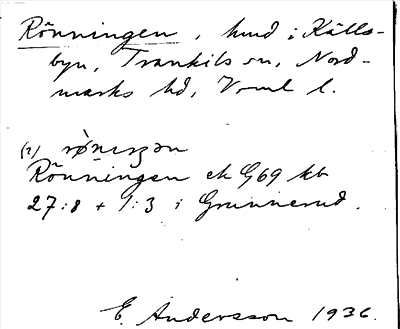 Rönningen, hmd i Källs-
byn, Trankils sn, Nord-
marks hd, Vrml l.
(?) rø̀nıŋən
Rönningen ek G69 kb
27:8 + 9:3 i Grunnerud.
E. Andersson 1936.